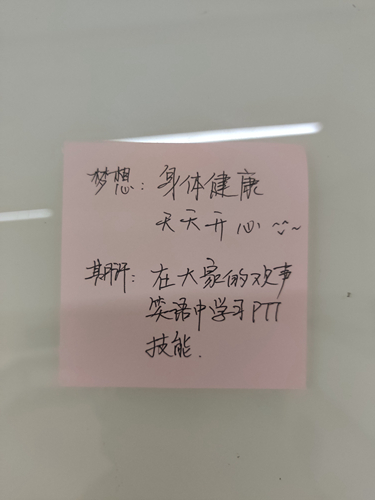 梦想：身体健康
天天开心
期盼：在大家的欢声
笑语中学习PTT
技能.